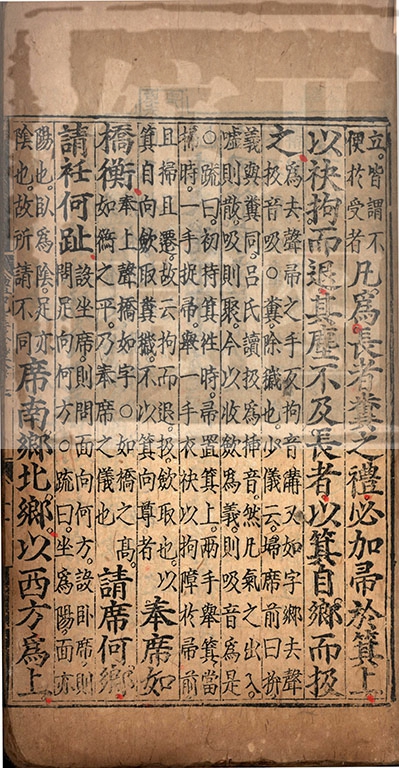 立。皆謂不
便於受者
凡爲長者糞之禮必加帚於箕上
以袂拘而退其塵不及長者以箕自鄉而扱
之
爲去聲帚之手反拘音溝又如字鄉去聲
扱音吸○糞除穢也少儀云埽席前曰拚
義與糞同呂氏讀扱爲插音然凡氣之出入
噓則散吸則聚今以收斂爲義則吸音爲是
○疏曰初持箕徃時帚置箕上兩手舉箕當
掃時一手捉帚舉一手衣袂以拘障於帚前
且掃且遷故云拘而退扱斂取也以
箕自向斂取糞穢不以箕向尊者
奉席如
橋衡
奉上聲橋如字○如橋之高
如衡之平乃奉席之儀也
請席何鄉
請衽何趾
設坐席則問面向何方設卧席則
問足向何方○疏曰坐爲陽面亦
陽也卧爲陰足亦
陰也故所請不同
席南鄉北鄉以西方爲上